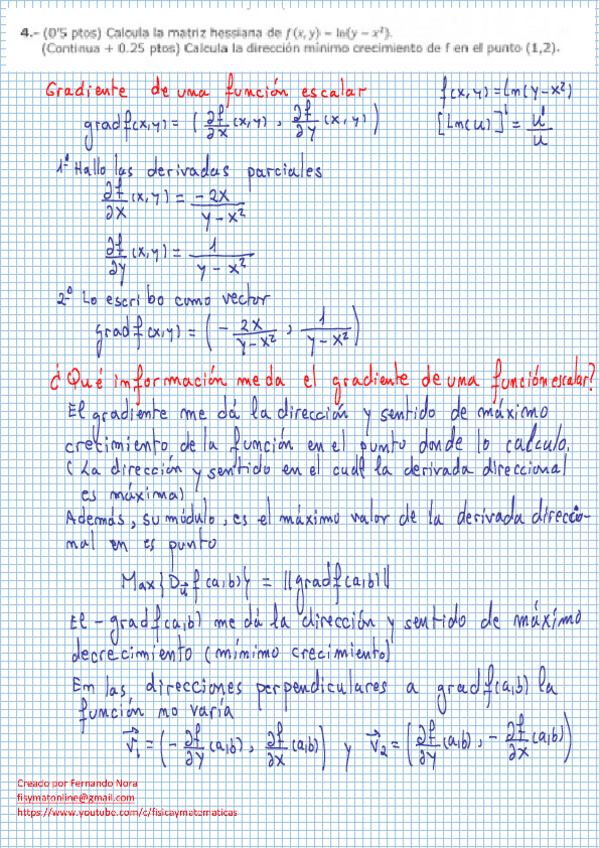 4.- (0'5 ptos) Calcula la matriz hessiana de f(x, y) = ln(y − x²).
(Continua + 0.25 ptos) Calcula la dirección mínimo crecimiento de f en el punto (1,2).
Gradiente de una función escalar
f(x,y) = Ln(y-x²)
grad f(x,y) = (∂f/∂x (x,y) , ∂f/∂y (x,y))
[Ln(u)]' = u'/u
1º Hallo las derivadas parciales
∂f/∂x (x,y) = -2x/(y-x²)
∂f/∂y (x,y) = 1/(y-x²)
2º Lo escribo como vector
grad f(x,y) = (- 2x/(y-x²) , 1/(y-x²))
¿Qué información me da el gradiente de una función escalar?
El gradiente me dá la dirección y sentido de máximo
crecimiento de la función en el punto donde lo calculo.
(La dirección y sentido en el cual la derivada direccional
es máxima)
Además, su módulo, es el máximo valor de la derivada direccio-
nal en es punto
Max{D_u⃗ f(a,b)} = ||grad f(a,b)||
El - grad f(a,b) me dá la dirección y sentido de máximo
decrecimiento (mínimo crecimiento)
En las direcciones perpendiculares a grad f(a,b) la
función no varía
v⃗₁ = (- ∂f/∂y (a,b) , ∂f/∂x (a,b)) y v⃗₂ = (∂f/∂y (a,b) , - ∂f/∂x (a,b))
Creado por Fernando Nora
fisymatonline@gmail.com
https://www.youtube.com/c/fisicaymatematicas